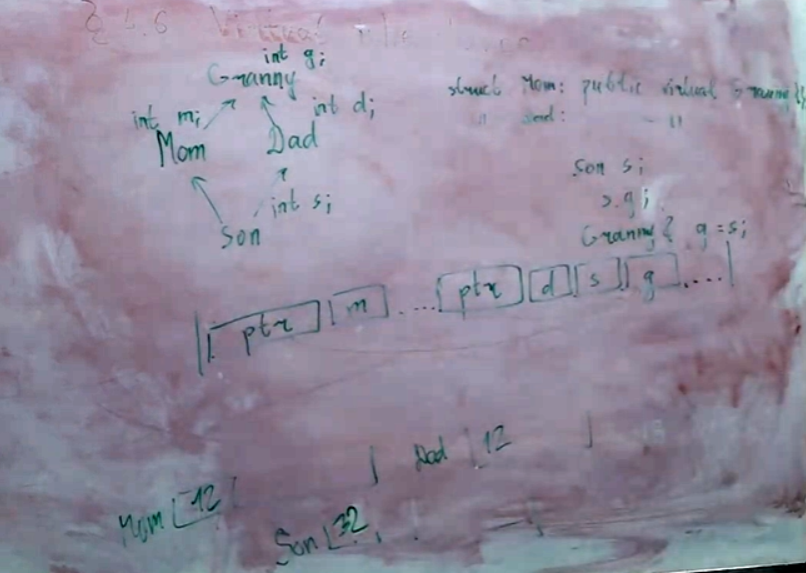 § 4.6 Virtual
int g;
Granny
struct Mom: public virtual Granny {};
int m; int d;
" Dad: — "
Mom Dad
Son s;
s.g;
int s;
Son
Granny & g = s;
ptr m .... ptr d s g ....
Dad 12
Mom 12
Son 32